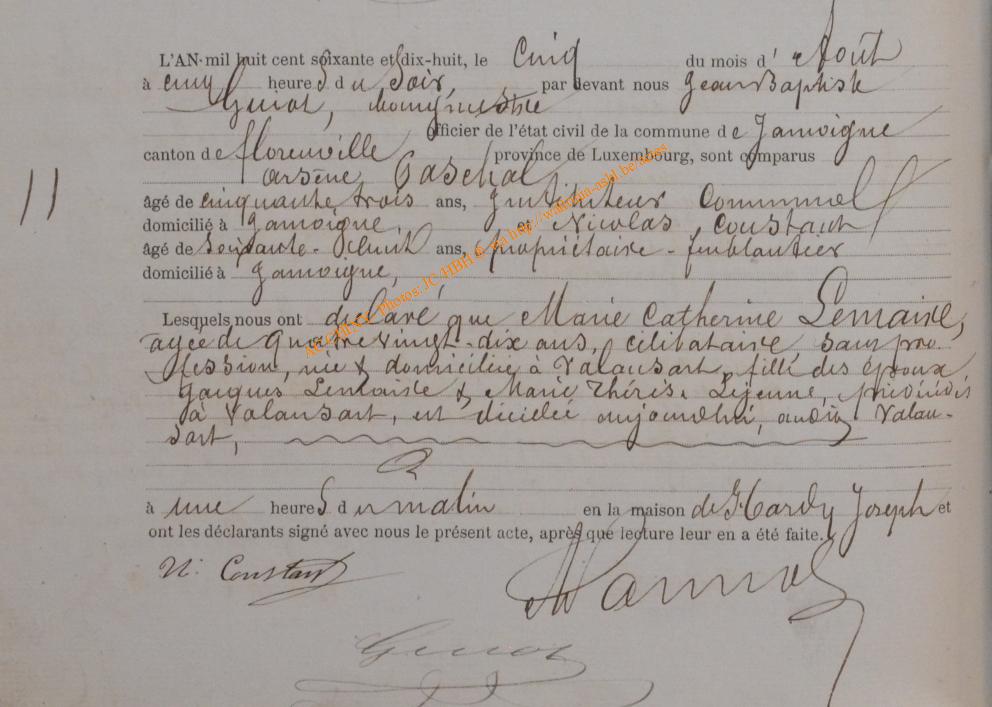 L'AN mil huit cent soixante et dix-huit, le cinq du mois d' Août
à cinq heures du soir, par devant nous Jean Baptiste
Genot, bourgmestre
Officier de l'état civil de la commune de Jamoigne
canton de florenville province de Luxembourg, sont comparus
arsène Paschal
11
âgé de cinquante trois ans, Instituteur Communal
domicilié à Jamoigne, et Nicolas Constant
âgé de soixante-huit ans, propriétaire-ferblantier
domicilié à Jamoigne,
Lesquels nous ont déclaré que Marie Catherine Lemaire,
agée de quatre vingt-dix ans, célibataire sans pro-
fession, née & domiciliée à Valansart, fille des époux
Jacques Lemaire & Marie Thérèse Lejeune, décédés
à Valansart, est décédée aujourd'hui, audit Valan-
sart,
à une heures du matin en la maison de Hardy Joseph et
ont les déclarants signé avec nous le présent acte, après que lecture leur en a été faite.
N. Constant
Genot
Photos: JC HBH & via http://walthan-asbl.be/actes